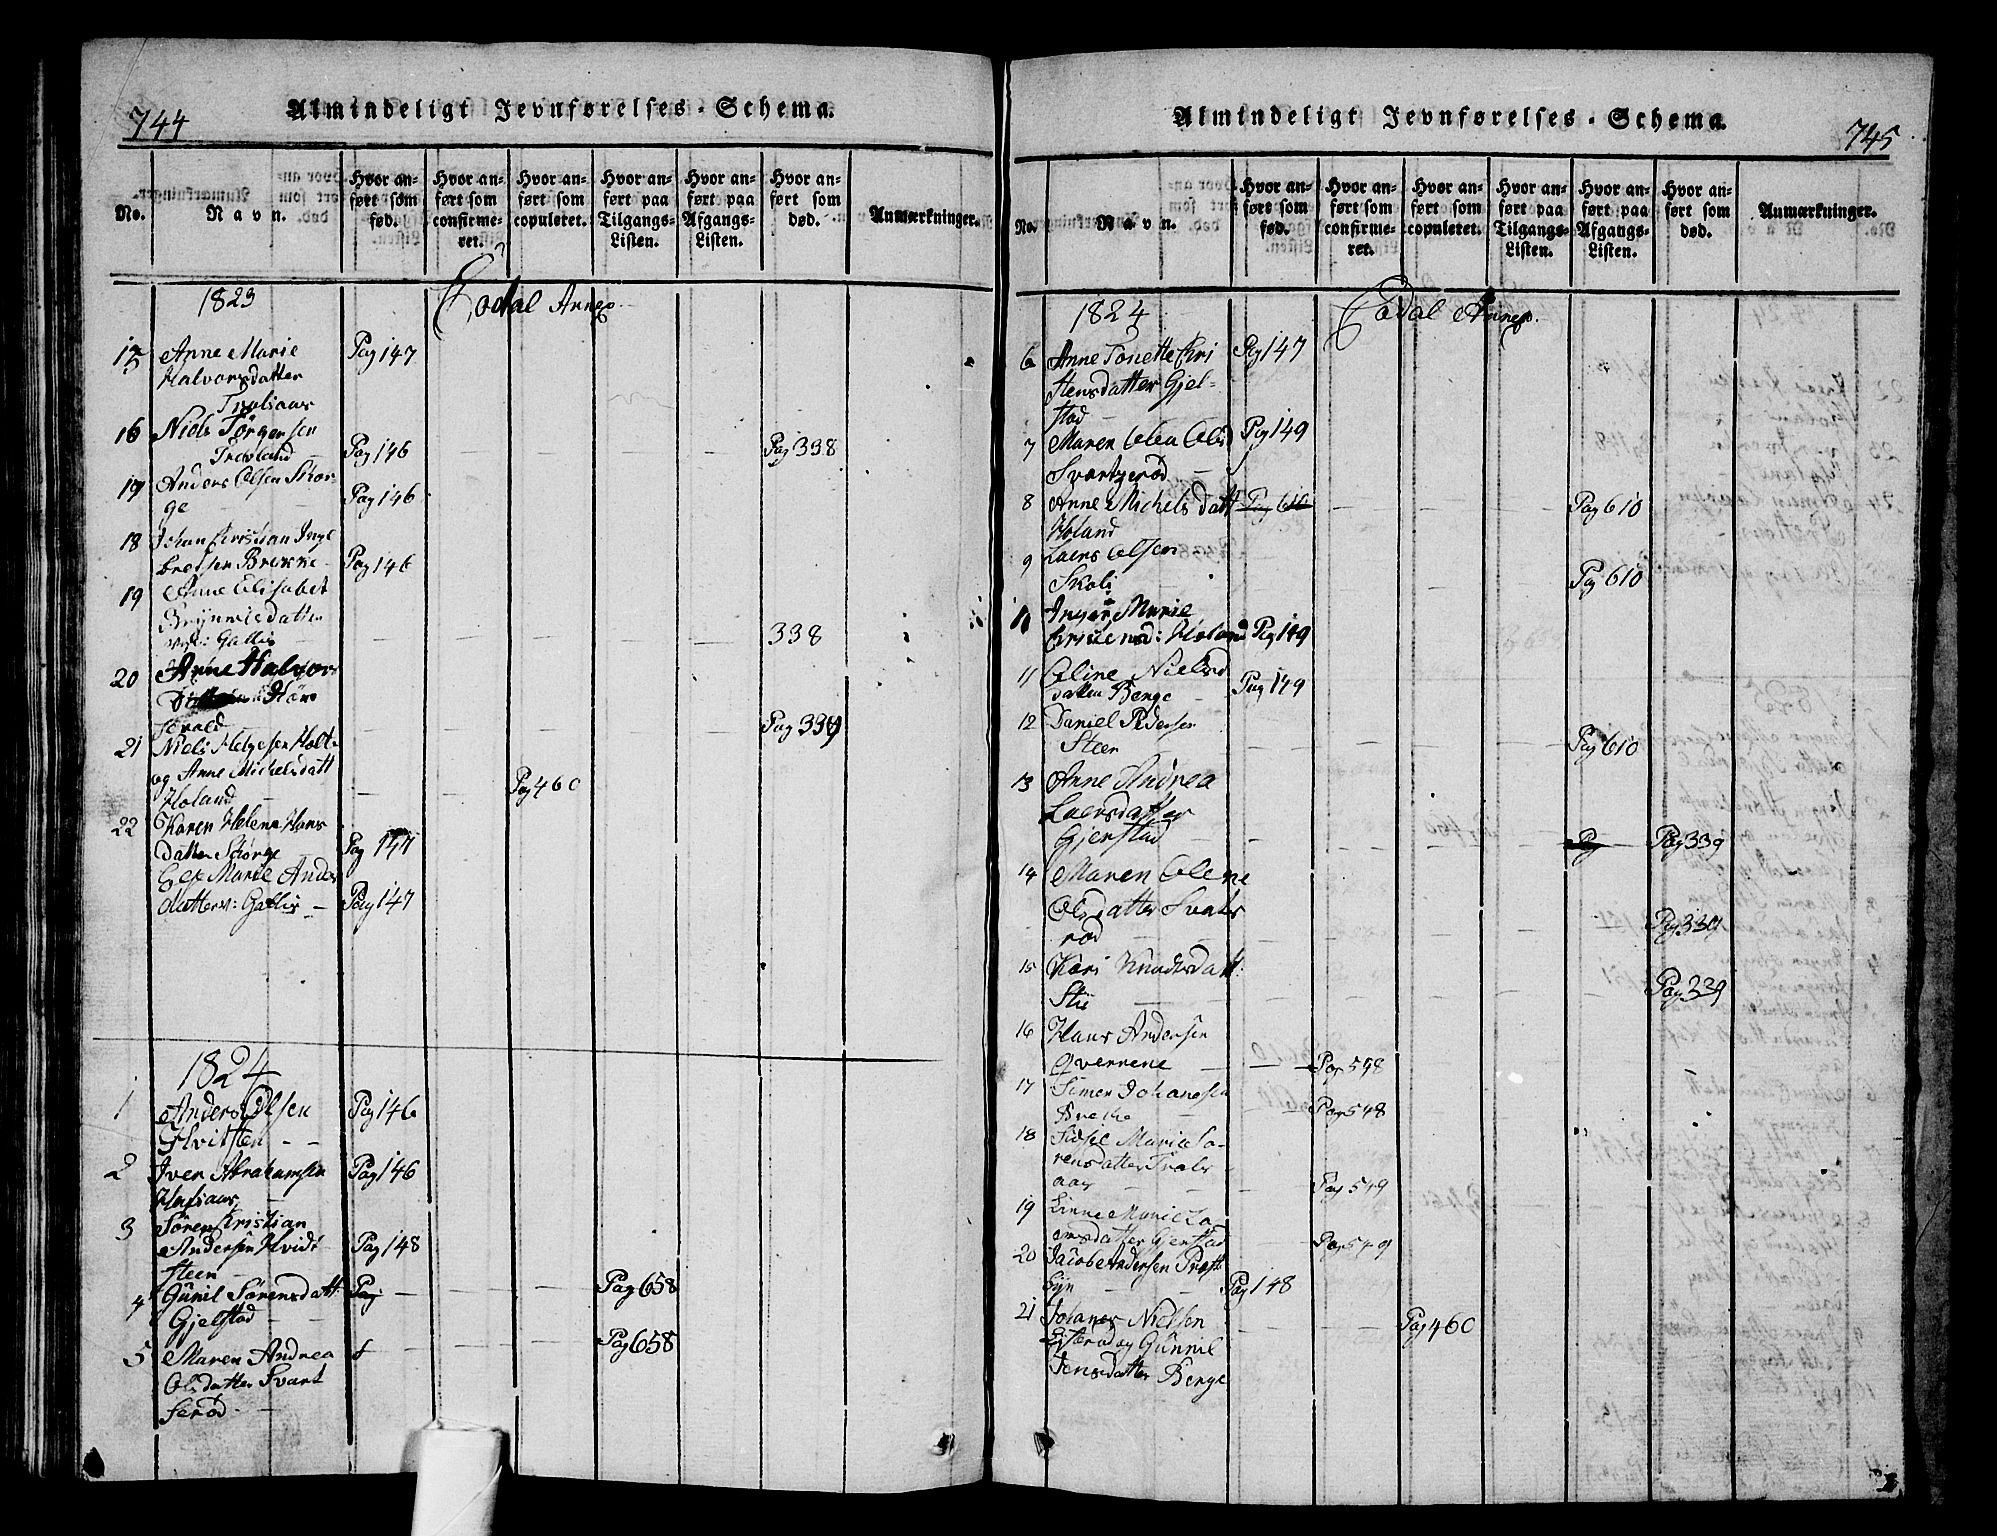 744
Almindeligt Jevnførelses-Schema.
No.
Navn.
Hvor an-
ført som
fød.
Hvor an-
ført som
confirme-
ret.
Hvor an-
ført som
copuleret.
Hvor an-
ført paa
Tilgangs-
Listen.
Hvor an-
ført paa
Afgangs-
Listen.
Hvor an-
ført som
død.
Anmærkninger.
1823 Eodal Annex.
Anne Marie Pag 147
Halvorsdatter
16 Niels Törgensen
Travland Pag 146 Pag 338
17 Anders Olsen Skor-
ge Pag 146
18 Johan Kristian Inge
bretsen Brekke Pag 146
19 Anne Elisabet
338
20 Anne Halvors
Pag 339
21 Niels Helgesen Holt
og Anne Michelsdatt
Holand Pag 460
22 Karen Helene Hans
datter Skorge Pag 147
Marie Anders
datter Pag 147
1824
1 Anders Olsen Pag 146
Hvitsten
2 Iver Abrahamsen Pag 146
3 Sören Kristian
Andersen Hvidt Pag 148
steen
4 Gunil Sörensdatt: Pag Pag 658
Gjelstad
5 Maren Andrea Pag 658
Olsdatter Svart
serød
Almindeligt Jevnførelses-Schema.
745
No.
Navn.
Hvor an-
ført som
fød.
Hvor an-
ført som
confirme-
ret.
Hvor an-
ført som
copuleret.
Hvor an-
ført paa
Tilgangs-
Listen.
Hvor an-
ført paa
Afgangs-
Listen.
Hvor an-
ført som
død.
Anmærkninger.
1824 Eodal Annex.
6 Anne Tonette Kri Pag 147
stensdatter Gjel-
stad
7 Maren Olea Olsd Pag 149
8 Anne Michelsdatt Pag 610 Pag 610
Holand
9 Laers Olsen
Skoli Pag 610
10 Inger Marie
Holand Pag 149
11 Oline Nielsd
datter Berge Pag 149
12 Daniel Pedersen
Steen Pag 610
13 Anne Andrea
Laersdatter
Gjerstad Pag Pag 339
14 Maren Olene
Olsdatter Svats
rød Pag 339
15 Kari Knudtsdatt:
Stie Pag 339
16 Hans Andersen
Qvernene Pag 548
17 Simen Johansen
Brekke Pag 548
18 Sidsel Maria La-
rensdatter Trals
aas Pag 549
19 Linne Marie La
ersdatter Gjerstad Pag 549
20 Jacob Andersen Præst
Pag 148
21 Johanes Nielsen
og Gunnil Pag 460
Jensdatter Berge